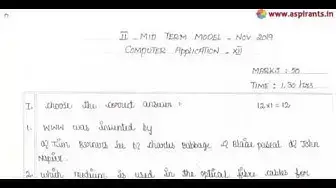 www.aspirants.in
II - MID TERM MODEL - NOV 2019
COMPUTER APPLICATION - XII
MARKS : 50
TIME : 1.30 HRS
I. choose the correct answer : 12x1=12
1. WWW was invented by
a) Tim Berners lee b) charles babbage c) Blaise pascal d) John
Napier.
2. which medium is used in the optical fibre cables for